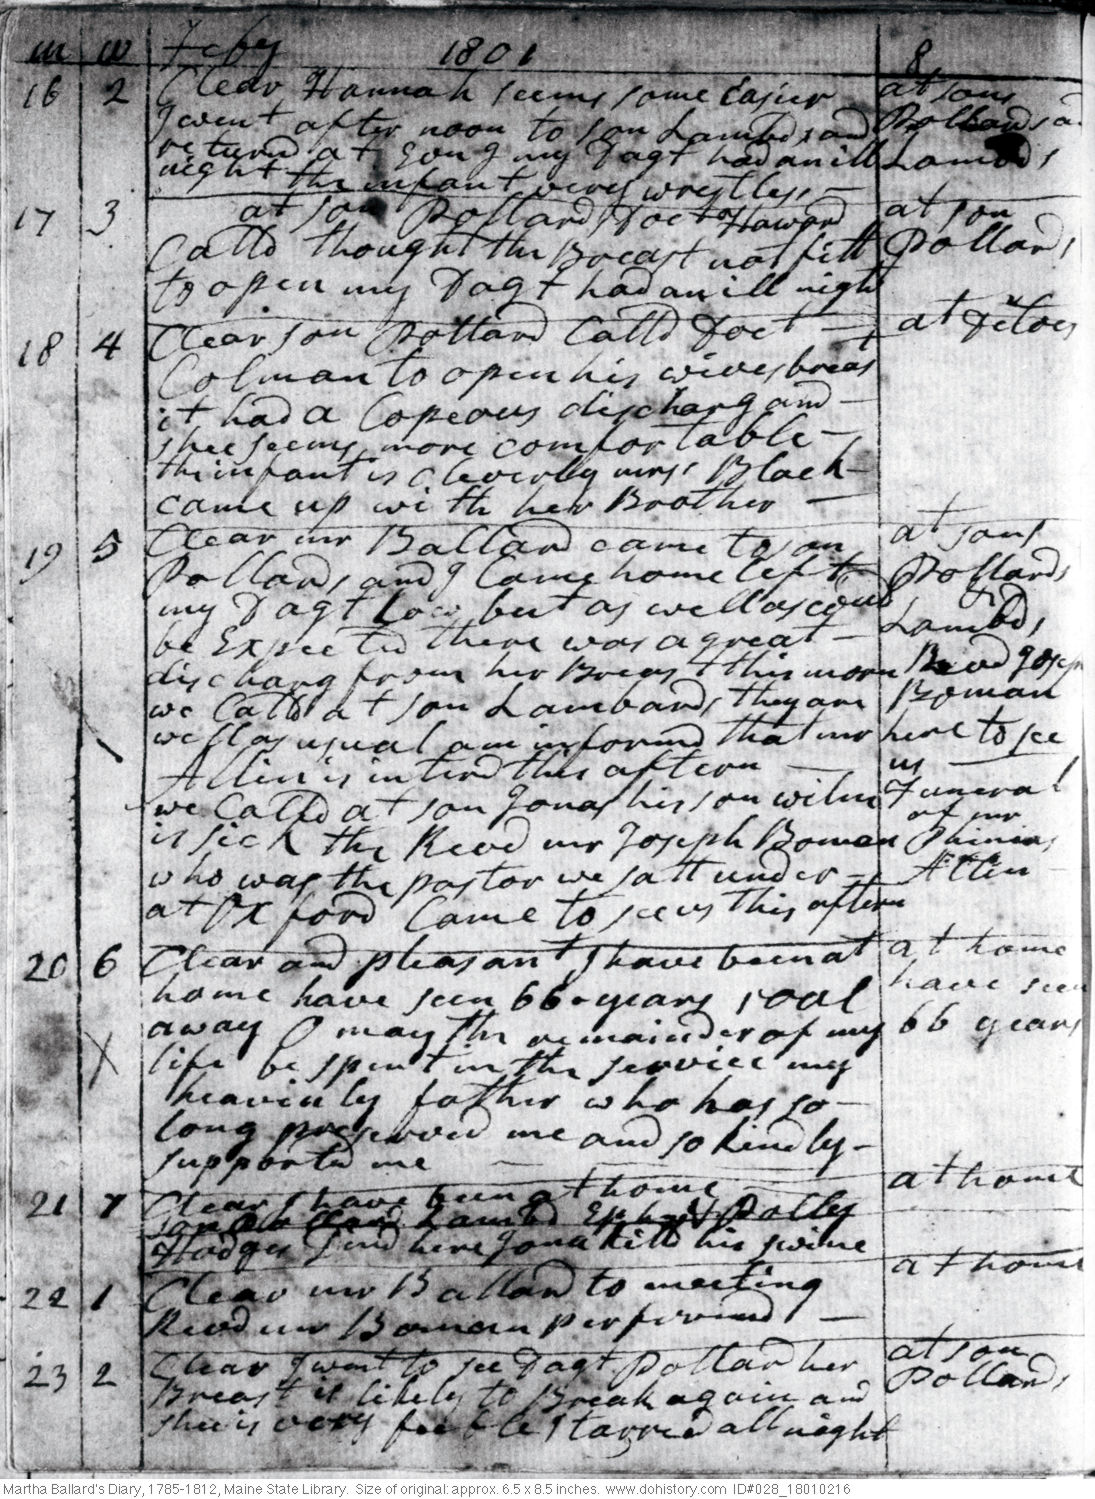 m w Feby 1801
16 2 Clear Hannah seems some Easier
I went after noon to son Lambds and
returnd at Evng my Dagt had an ill
night the infant very wrestless
at sons
Pollards
Lambds
17 3 at son Pollards Doct Howard
Calld thought the Breast not fitt
to open my Dagt had an ill night
at son
Pollards
18 4 Clear son Pollard Calld Doct
Colman to open his wives breas
it had a Copeous discharg and
shee seems more comfortable
the infant is cleverly mrs Black
came up with her Brother
at ditoes
19 5 Clear mr Ballard came to son
Pollards and I Came home left
my Dagt Low but as well as could
be Expected there was a great
discharg from her Breast this morn
we Calld at son Lambards they are
well as usual am informd that mr
Allin is interd this aftern
we Calld at son Jonas his son
is sick the Revd mr Joseph Boman
who was the pastor we satt under
at Oxford Came to see us this aftern
at sons
Pollards
&
Lambds
Revd Joseph
Boman
here to see
us
Funeral
of mr
Phinias
Allin
20 6 Clear and pleasant I have been at
home have seen 66 years rool
away O may the remainder of my
life be spent in the service my
heavinly father who has so
long preserved me and so kindly
supported me
at home
have seen
66 years
21 7 Clear I have been at home
son Lambd Ephm & Polley
Hodges Dind here Jona killd his swine
at home
22 1 Clear mr Ballard to meeting
Revd mr Boman performd
at home
23 2 Clear I went to see Dagt Pollard her
Breast is likely to Break again and
shee is very feeble I tarried all night
at son
Pollards
Martha Ballard's Diary, 1785-1812, Maine State Library. Size of original: approx. 6.5 x 8.5 inches. www.dohistory.com ID#028_18010216